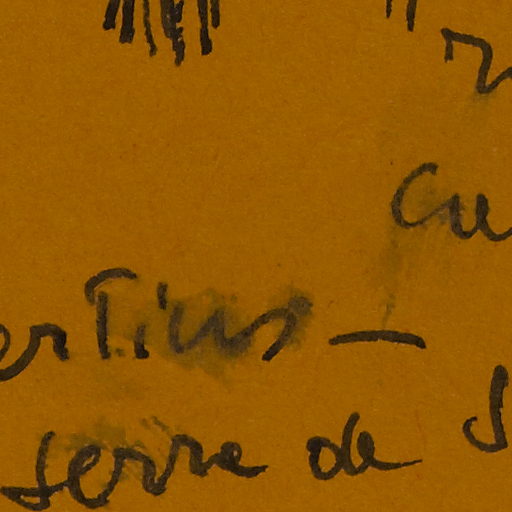 cu
ertius —
serre de S